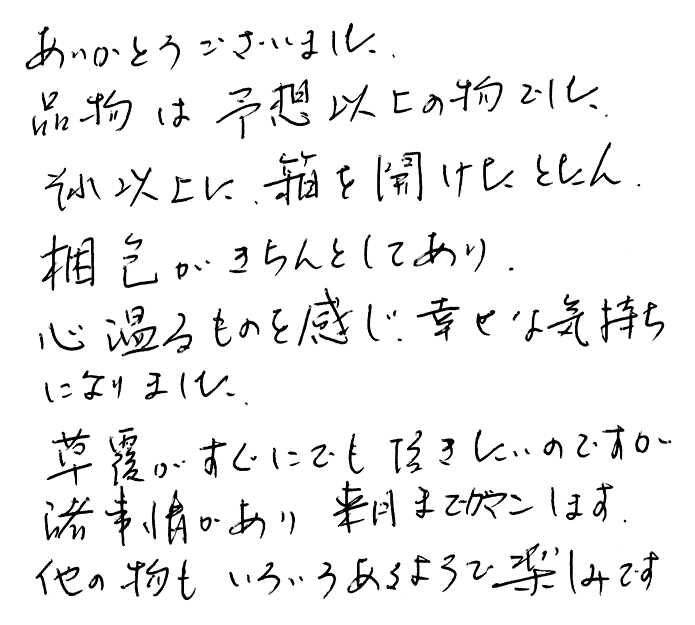 ありがとうございました、
品物は予想以上の物でした、
それ以上に、箱を開けたとたん、
梱包がきちんとしてあり、
心温るものを感じ、幸せな気持ち
になりました、
草履がすぐにでも頂きたいのですが
諸事情があり来月までガマンします、
他の物もいろいろあるようで楽しみです